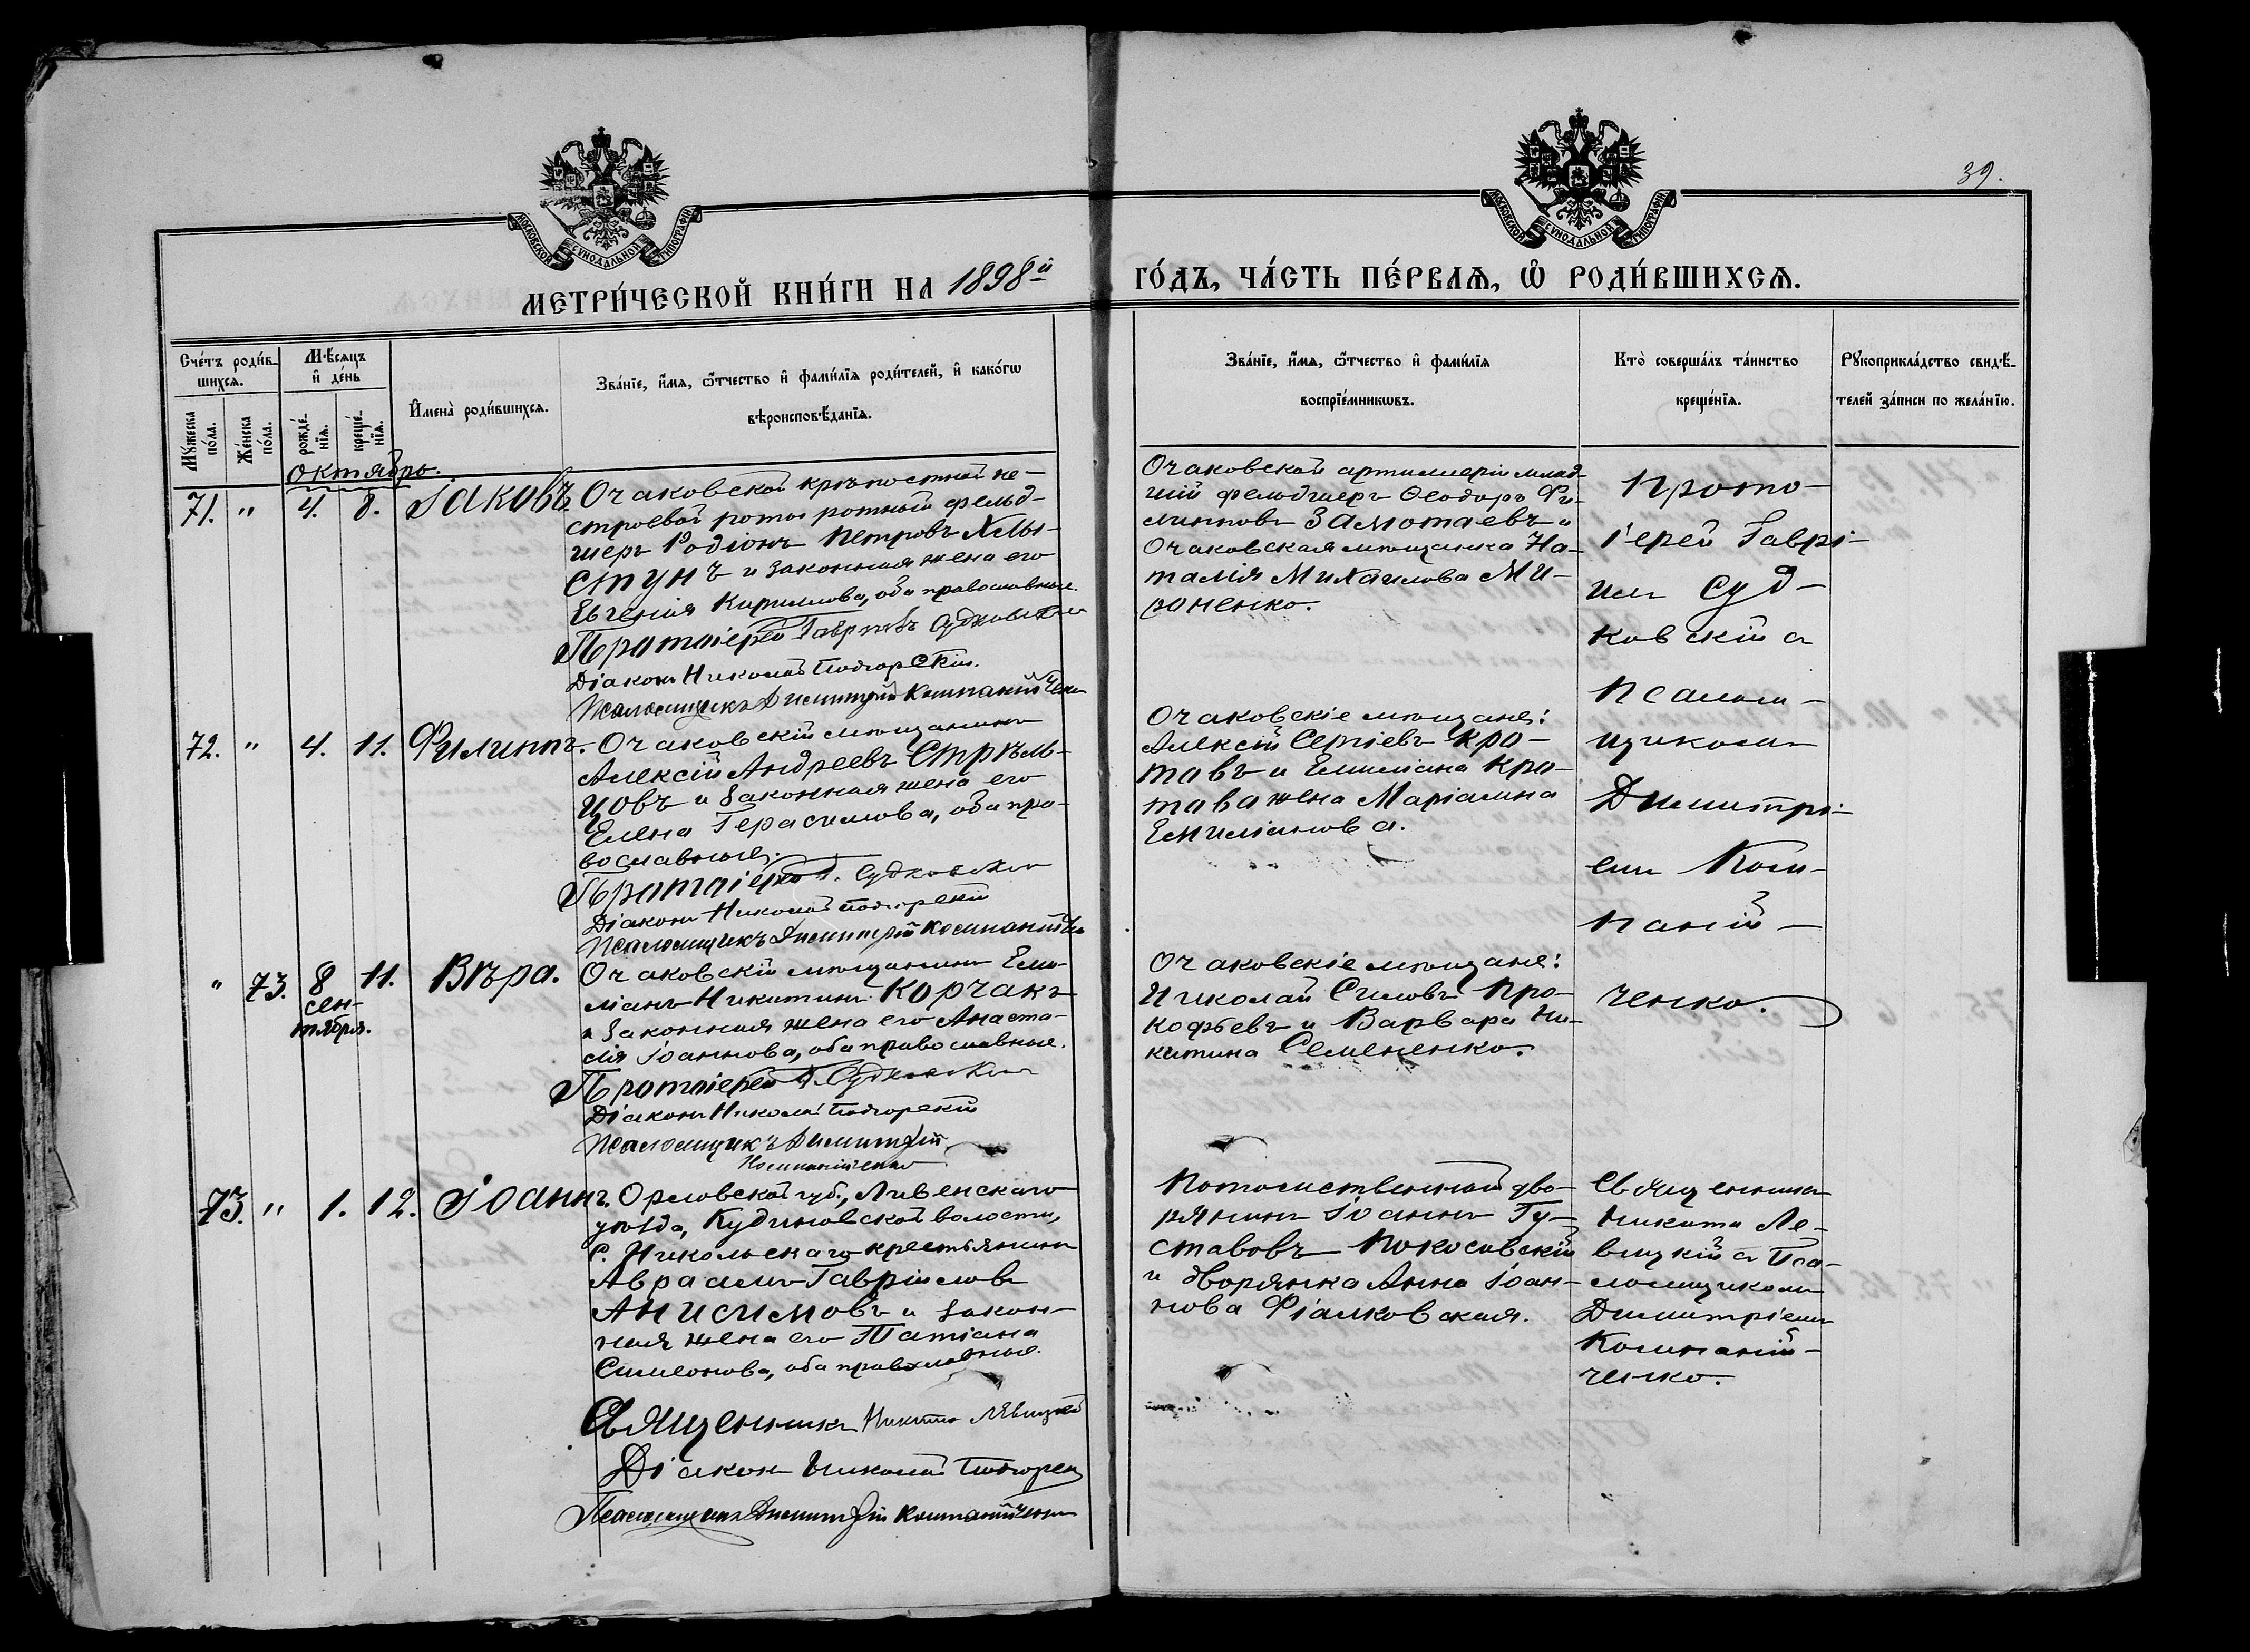 39.
МОСКОВСКОЙ СѴНОДАЛЬНОЙ ТИПОГРАФІИ
МОСКОВСКОЙ СѴНОДАЛЬНОЙ ТИПОГРАФІИ
МЕТРИ́ЧЕСКОЙ КНИ́ГИ НА 1898й ГО́ДЪ, ЧА́СТЬ ПЕ́РВАѦ, Ѡ҆ РОДИ́ВШИХСѦ.
Сче́тъ роди́в-
шихсѧ.
Мꙋ́жеска
по́ла.
Же́нска
по́ла.
Мѣ́сѧцъ
и҆ де́нь
рожде́-
нїѧ.
креще́-
нїѧ.
И҆мена̀ роди́вшихсѧ.
Зва́нїе, и҆́мѧ, ѻ҆́тчество и҆ фами́лїѧ роди́телей, и҆ како́гѡ
вѣроисповѣ́данїѧ.
Зва́нїе, и҆́мѧ, ѻ҆́тчество и҆ фами́лїѧ
воспрїе́мникѡвъ.
Кто̀ соверша́лъ та́инство
креще́нїѧ.
Рꙋкоприкла́дство свидѣ́-
телей за́писи по жела́нїю.
Октябрь.
71. " 4. 8. Іаковъ.
Очаковской крѣпостной не-
строевой роты ротный фельд-
шеръ Родіонъ Петровъ Хлы-
стунъ и законная жена его
Евгенія Кириллова, оба православные.
Протоіерей Гавріилъ Судковскій
Діаконъ Николай Подгорскій.
Псаломщикъ Димитрій Компанійченко
Очаковской артиллеріи млад-
шій фельдшеръ Ѳеодоръ Фи-
липповъ Замотаевъ и
Очаковская мѣщанка На-
талія Михаилова Ми-
роненко.
Прото-
іерей Гаврі-
илъ Суд-
ковскій съ
псалом-
щикомъ
Димитрі-
емъ Ком-
паній-
ченко.
72. " 4. 11. Филиппъ.
Очаковскій мѣщанинъ
Алексій Андреевъ Стрѣль-
цовъ и законная жена его
Елена Герасимова, оба пра-
вославные.
Протоіерей Г. Судковскій
Діаконъ Николай Подгорскій
Псаломщикъ Димитрій Компанійченко
Очаковскіе мѣщане:
Алексій Сергіевъ Кро-
товъ и Емиліана Кро-
това жена Маріамна
Емиліанова.
" 73. 8 11. Вѣра.
сен-
тября.
Очаковскій мѣщанинъ Еми-
ліанъ Никитинъ Корчакъ
и законная жена его Анаста-
сія Іоаннова, оба православные.
Протоіерей Г. Судковскій
Діаконъ Николай Подгорскій
Псаломщикъ Димитрій
Компанійченко
Очаковскіе мѣщане:
Николай Силовъ Про-
кофьевъ и Варвара Ни-
китина Семененко.
73. " 1. 12. Іоаннъ.
Орловской губ., Ливенскаго
уѣзда, Кудиновской волости,
с. Никольскаго крестьянинъ
Авраамъ Гавріиловъ
Анисимовъ и закон-
ная жена его Татіана
Симеонова, оба православные.
Священникъ Никита Левицкій
Діаконъ Николай Подгорскій
Псаломщикъ Димитрій Компанійченко
Потомственный дво-
рянинъ Іоаннъ Гу-
ставовъ Покосовскій
и дворянка Анна Іоан-
нова Фіалковская.
Священникъ
Никита Ле-
вицкій съ Пса-
ломщикомъ
Димитріемъ
Компаній-
ченко.